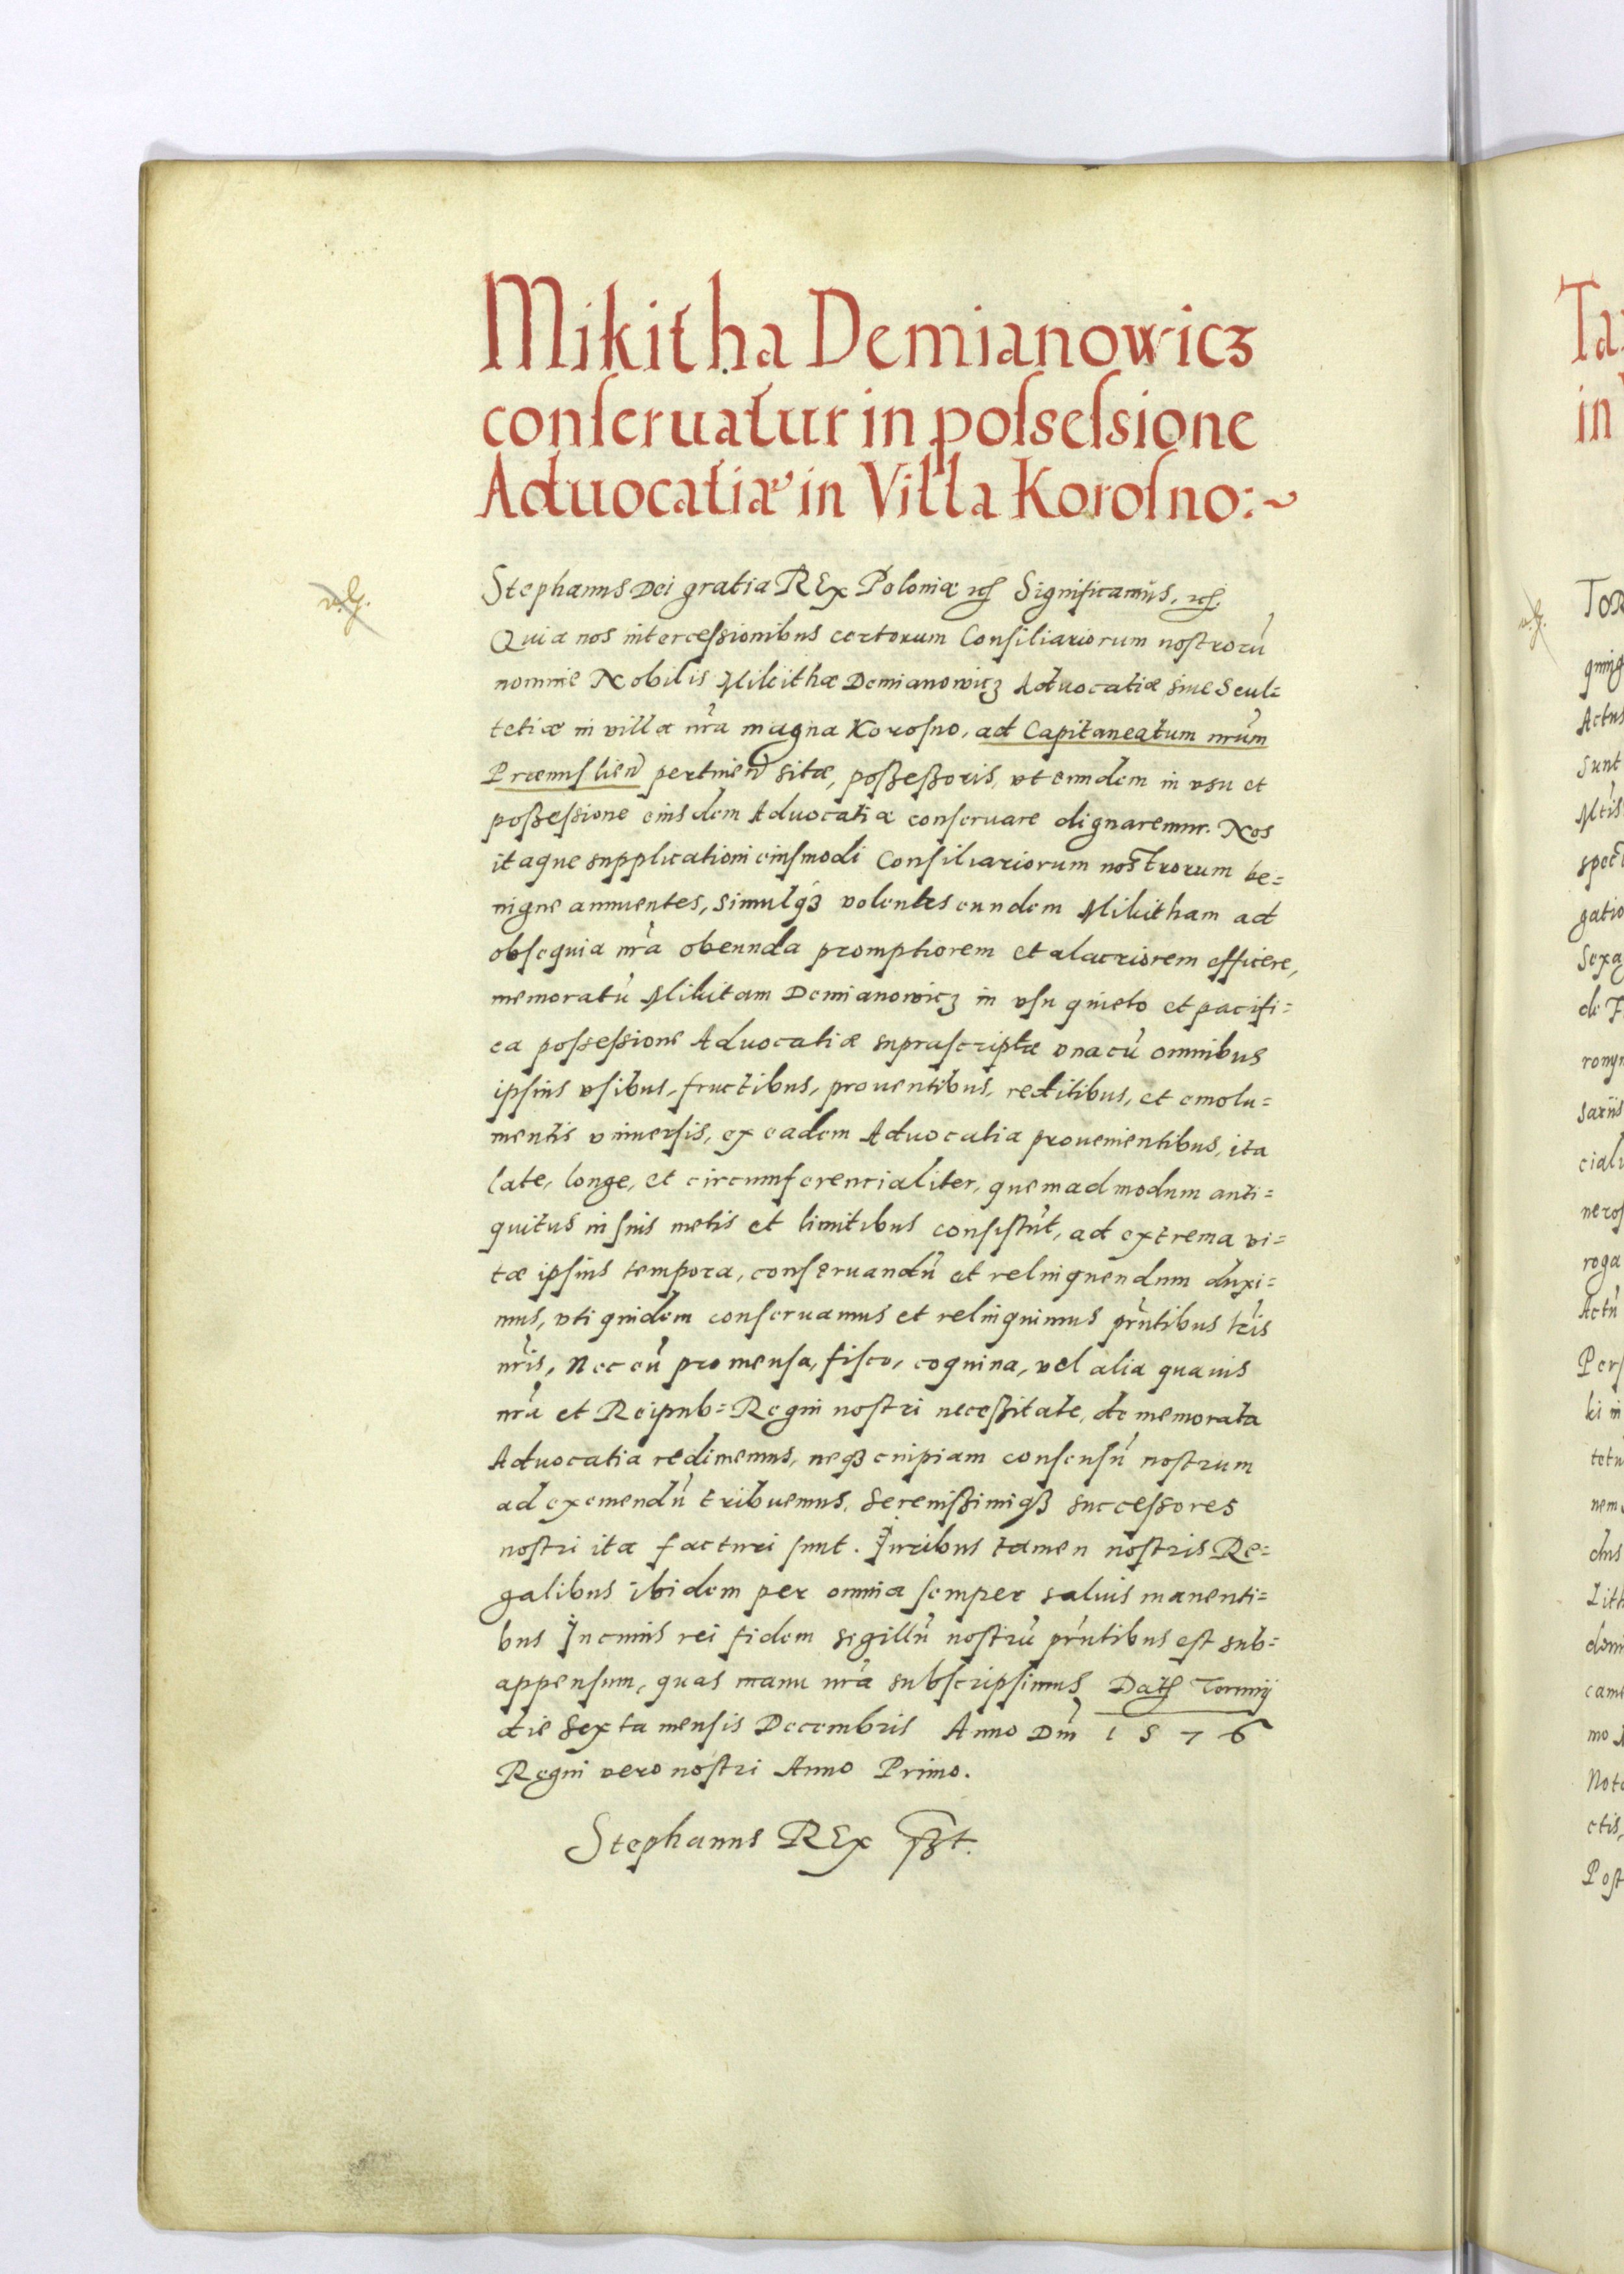 Mikitha Demianowicz
conseruatur in possessione
Aduocatiæ in Villa Korosno:~
Stephanus Dei gratia REx Poloniæ etc Significamus, etc.
Quia nos intercessionibus certorum Consiliariorum nostrorū
nomine Nobilis Mikithæ Demianowicz Aduocatiæ siue Scul=
tetiæ in villa nrā magna Korosno, ad Capitaneatum nrūm
Præmislien̄ pertinen̄ sitæ, possessoris, vt eundem in vsu et
possessione eiusdem Aduocatiæ conseruare dignaremur. Nos
itaque supplicationi eiusmodi Consiliariorum nostrorum be=
nigne annuentes, simulq3 volentes eundem Mikitham ad
obsequia nrā obeunda promptiorem et alacriorem efficere,
memoratū Mikitam Demianowicz in vsu quieto et pacifi=
ca possessione Aduocatiæ suprascriptæ vnacū omnibus
ipsius vsibus, fructibus, prouentibus, reditibus, et emolu=
mentis vniuersis, ex eadem Aduocatia prouenientibus, ita
late, longe, et circumferencialiter, quemadmodum anti=
quitus in suis metis et limitibus consistūt, ad extrema vi=
tæ ipsius tempora, conseruandū et relinquendum duxi=
mus, vti quidem conseruamus et relinquimus prn̄tibus lrīs
nrīs, Nec eū pro mensa, fisco, coquina, vel alia quauis
nrā et Reipub= Regni nostri necessitate, de memorata
Aduocatia redimemus, neq3 cuipiam consensū nostrum
ad exemendū tribuemus, Serenissimiq3 successores
nostri ita facturi sunt. Iuribus tamen nostris Re=
galibus ibidem per omnia semper saluis manenti=
bus In cuius rei fidem sigillū nostrū prn̄tibus est sub=
appensum, quas manu nrā subscripsimus Dat Torunij
die Sexta mensis Decembris Anno Dnī 1576
Regni vero nostri Anno Primo.
Stephanus REx sst.